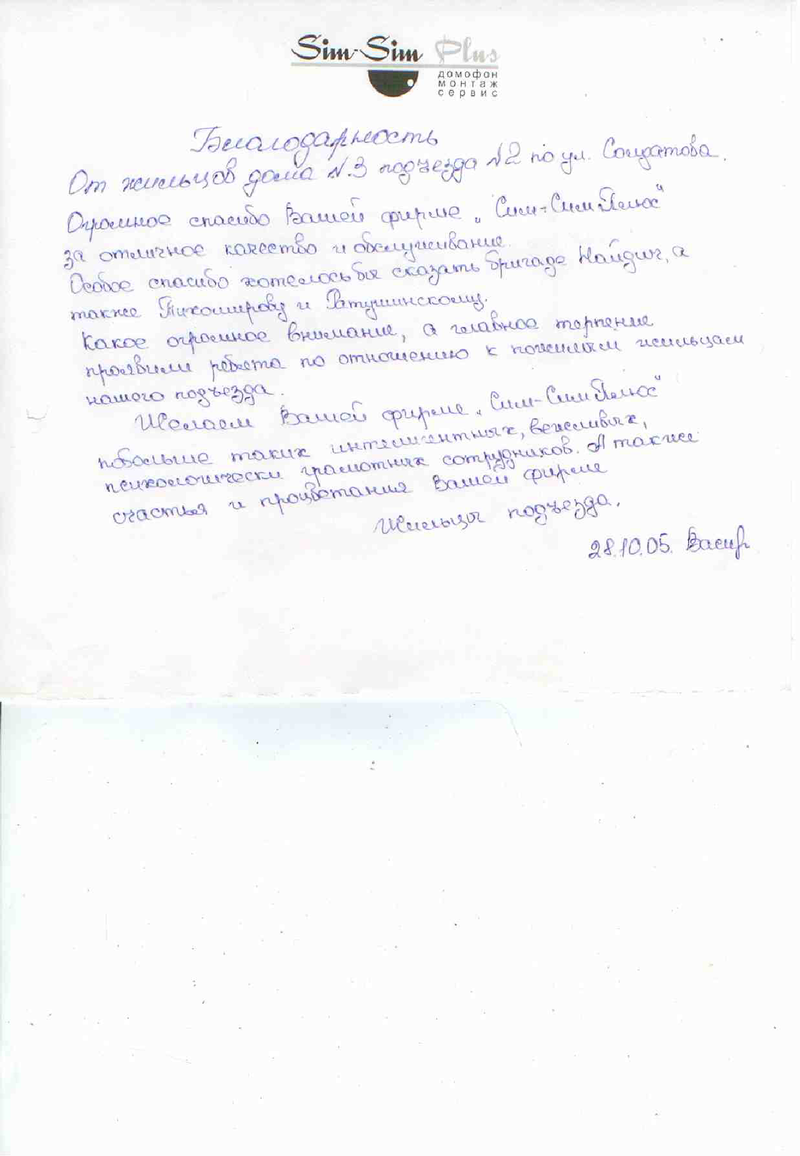 Sim-Sim Plus
домофон
монтаж
сервис
Благодарность
От жильцов дома N.3 подъезда N2 по ул. Солдатова.
Огромное спасибо Вашей фирме „Сим-Сим Плюс"
за отличное качество и обслуживание.
Особое спасибо хотелось бы сказать бригаде Найдич, а
также Тихомирову и Ратушинскому.
Какое огромное внимание, а главное терпение
проявили ребята по отношению к пожилым жильцам
нашего подъезда.
Желаем Вашей фирме „Сим-Сим Плюс"
побольше таких интеллигентных, вежливых,
психологически грамотных сотрудников. А также
счастья и процветания Вашей фирме
Жильцы подъезда.
28.10.05.